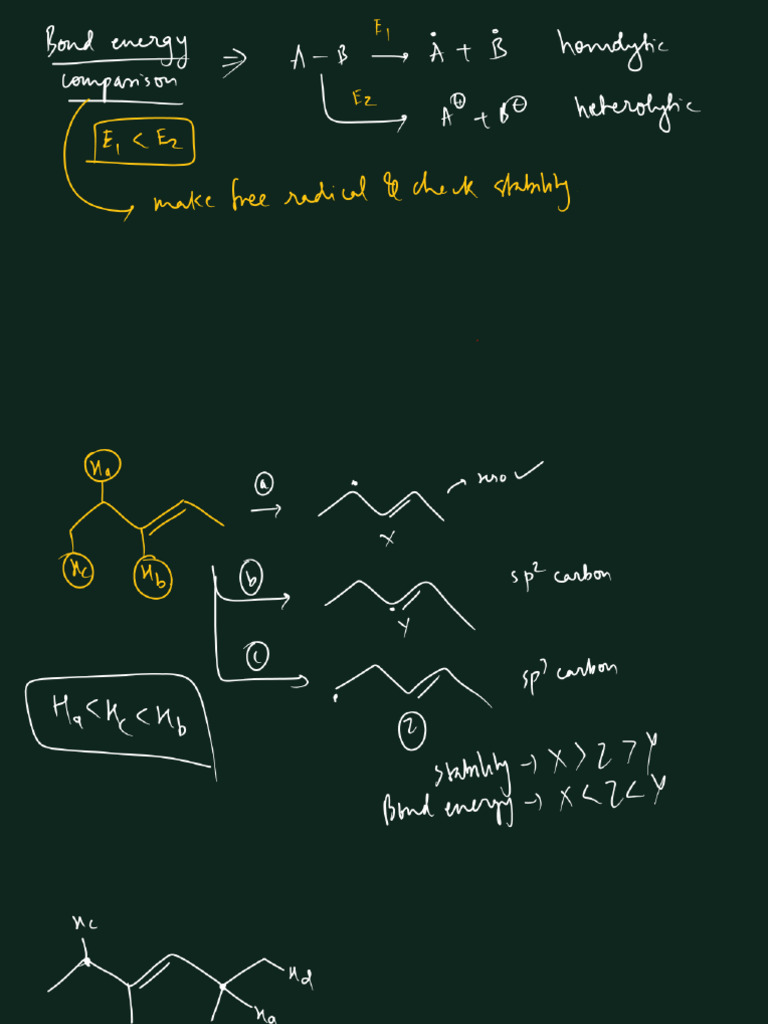 Bond energy ⇒ A – B E₁ → Ȧ + Ḃ homolytic
comparison E₂ → A⊕ + B⊖ heterolytic
E₁ < E₂
make free radical & check stability
Ha
Hc
Hb
a → reso ✓
X
b sp² carbon
Y
c sp³ carbon
Z
Ha < Hc < Hb
Stability → X > Z > Y
Bond energy → X < Z < Y
Hc
Hd
Ha